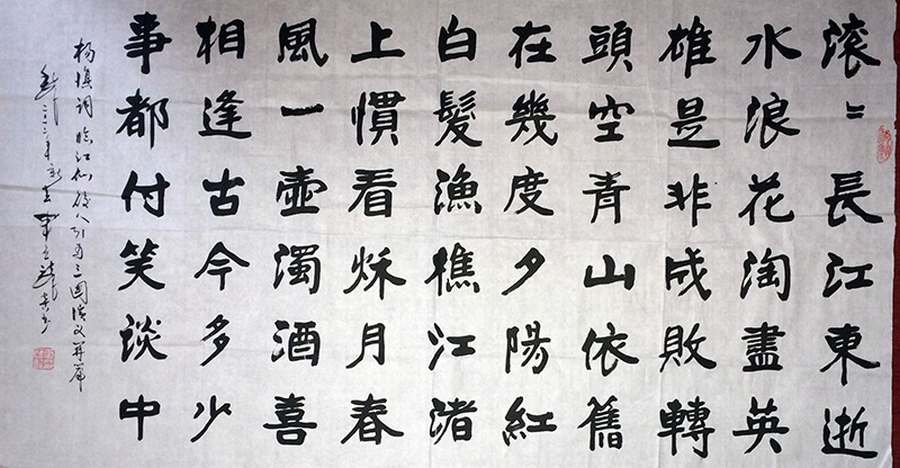 滚〻長江東逝
水浪花淘盡英
雄是非成敗轉
頭空青山依舊
在幾度夕陽紅
白髮漁樵江渚
上慣看秌月春
風一壺濁酒喜
相逢古今多少
事都付笑談中
杨慎词临江仙後人引为三國演义开篇